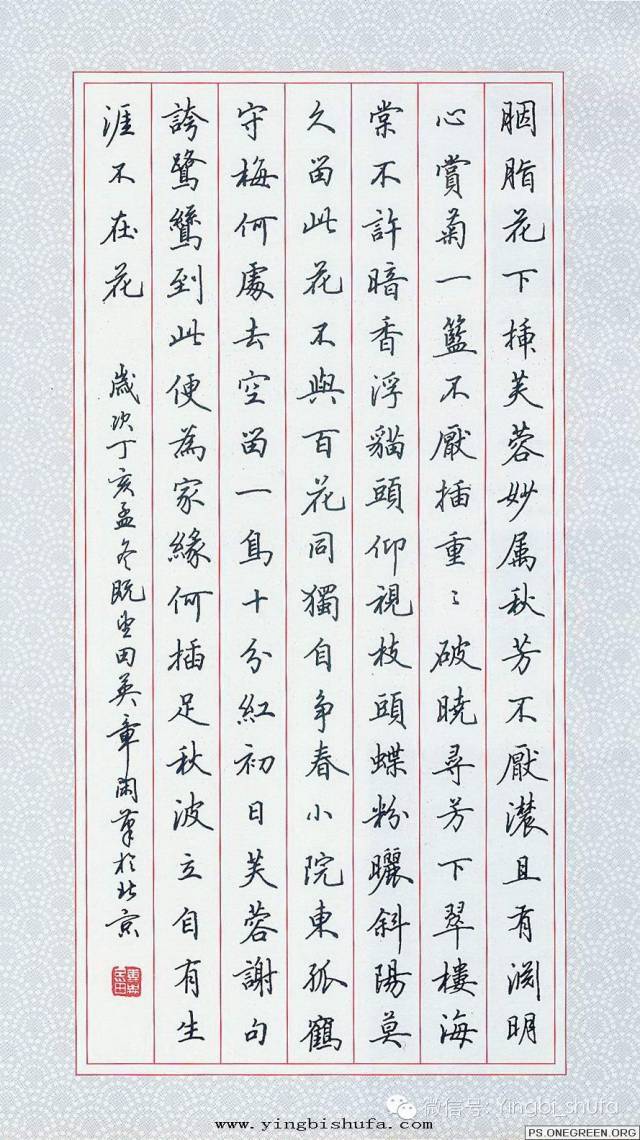 胭脂花下插芙蓉妙属秋芳不厭濃且有渊明
心賞菊一籃不厭插重〻破曉尋芳下翠樓海
棠不許暗香浮貓頭仰視枝頭蝶粉曬斜陽莫
久留此花不與百花同獨自争春小院東孤鶴
守梅何處去空留一鳥十分紅初日芙蓉謝句
誇鷺鷥到此便為家緣何插足秋波立自有生
涯不在花
歲次丁亥孟冬既望田英章閑筆於北京
微信号: Yingbi_shufa
www.yingbishufa.com
PS.ONEGREEN.ORG